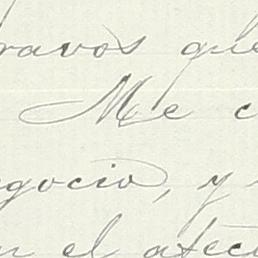 ravos que
Me c
egocio, y
el afec